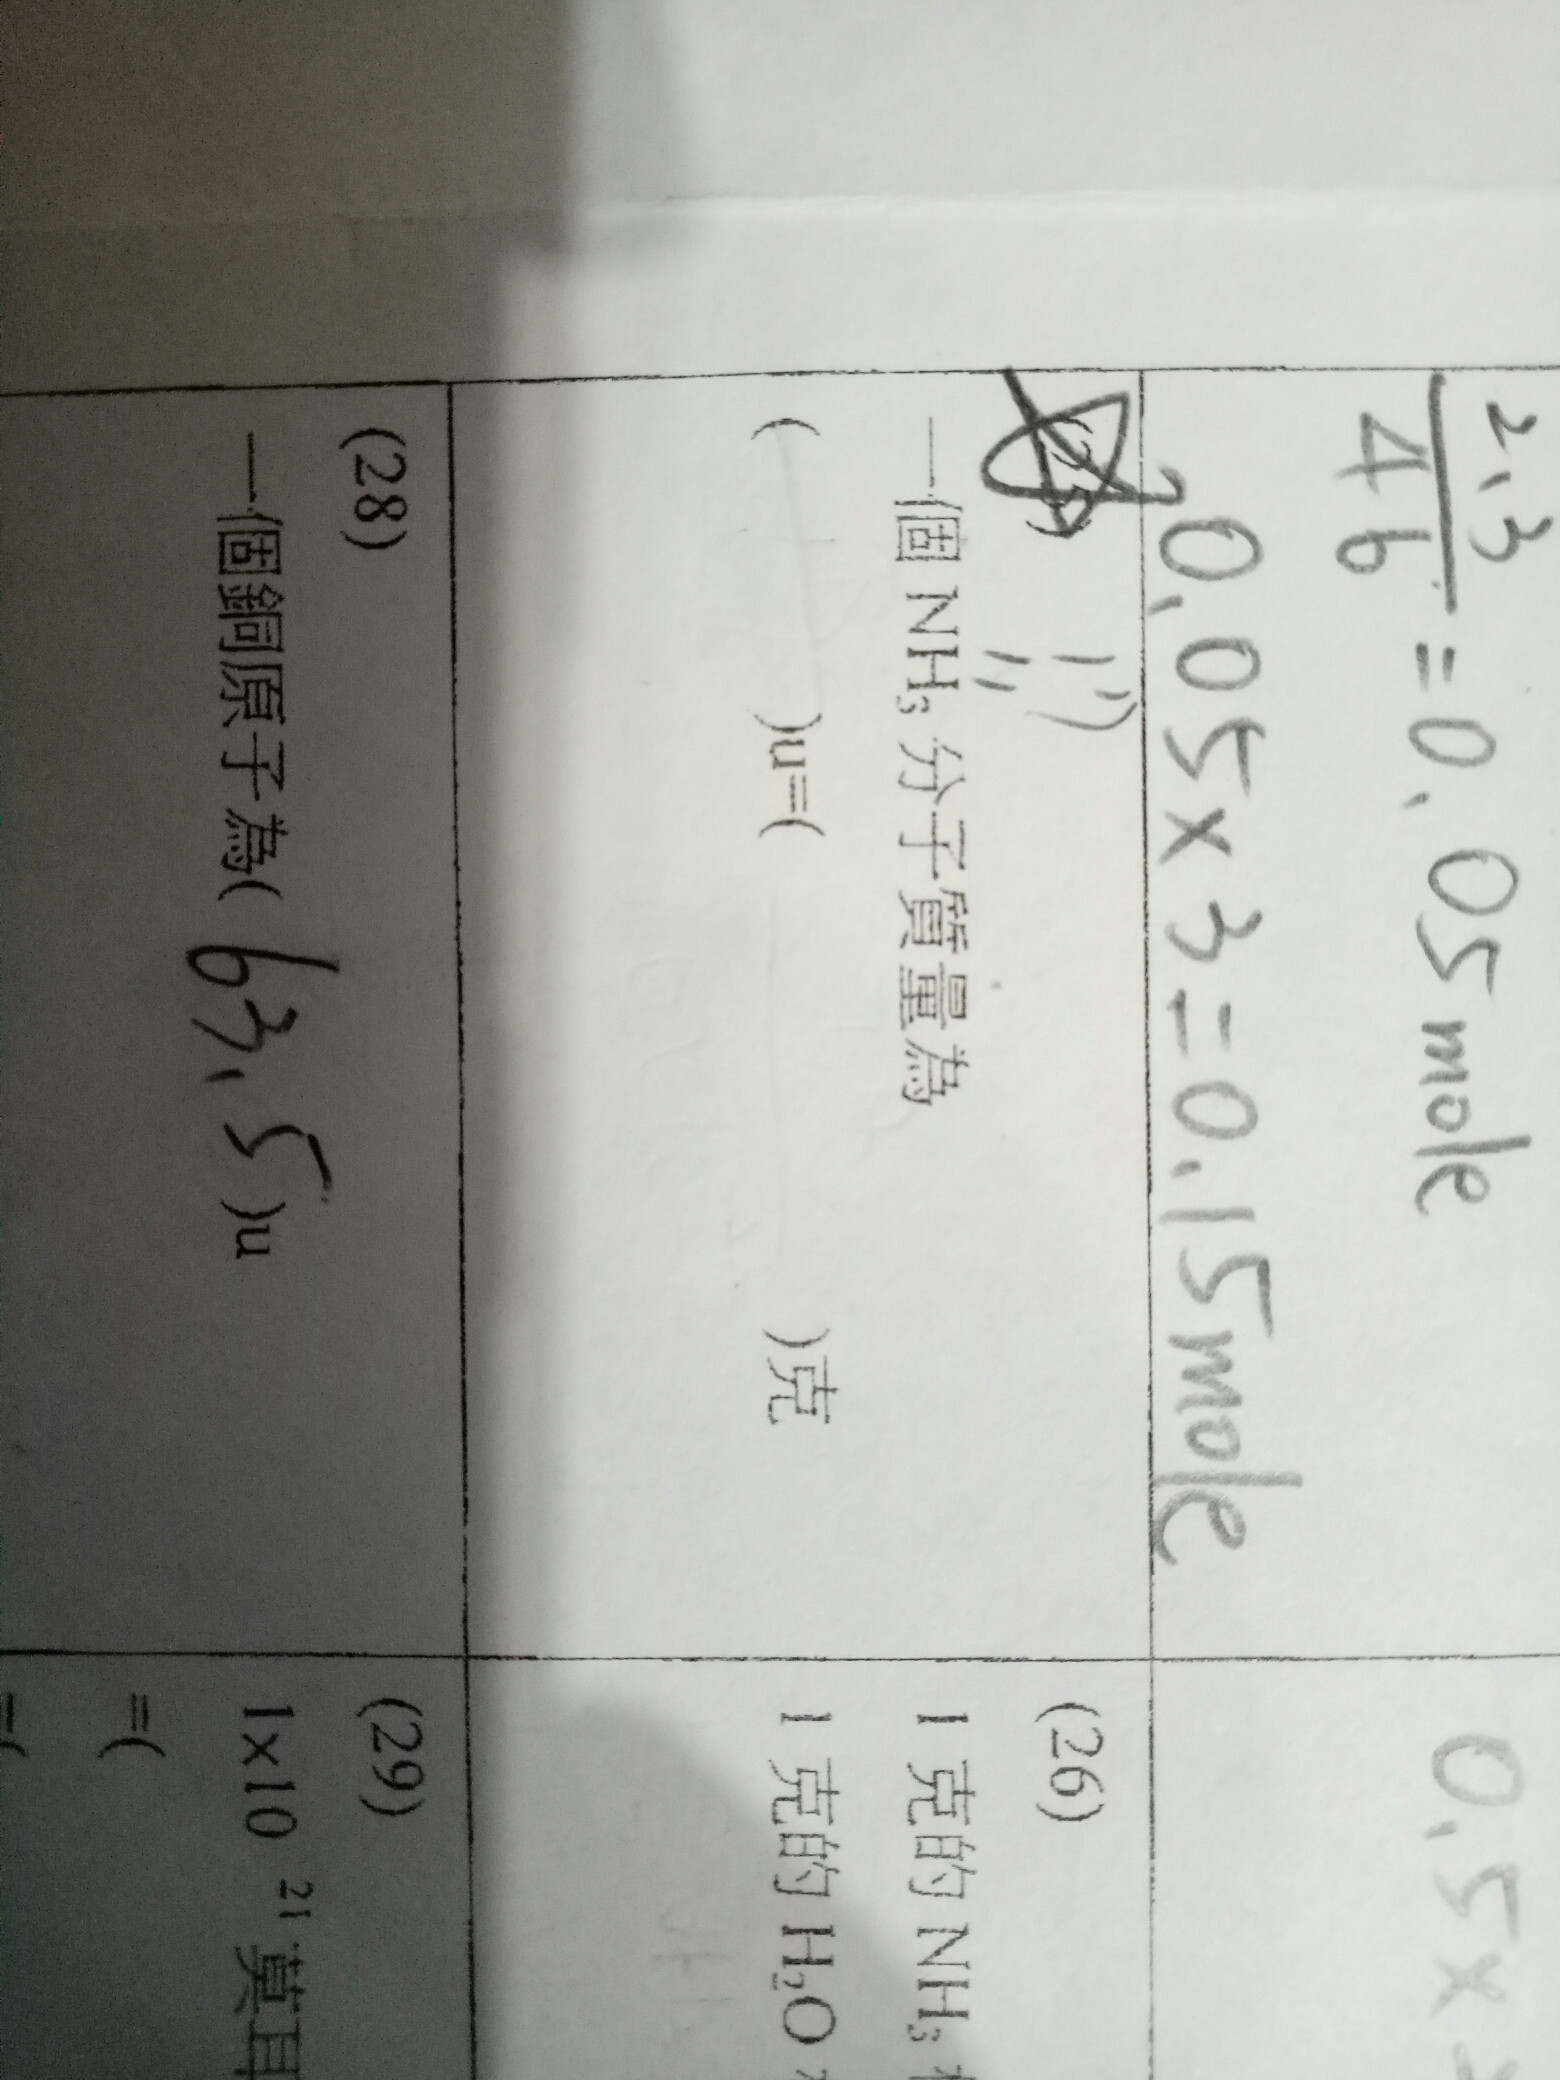 2.3
46
=0.05mole
0.05×3=0.15mole
0.5×
一個 NH₃ 分子質量為
(          )u=(          )克
(26)
1 克的 NH₃
1 克的 H₂O
(28)
一個銅原子為( 63.5 )u
(29)
1×10 ²¹ 莫耳
=(
=(